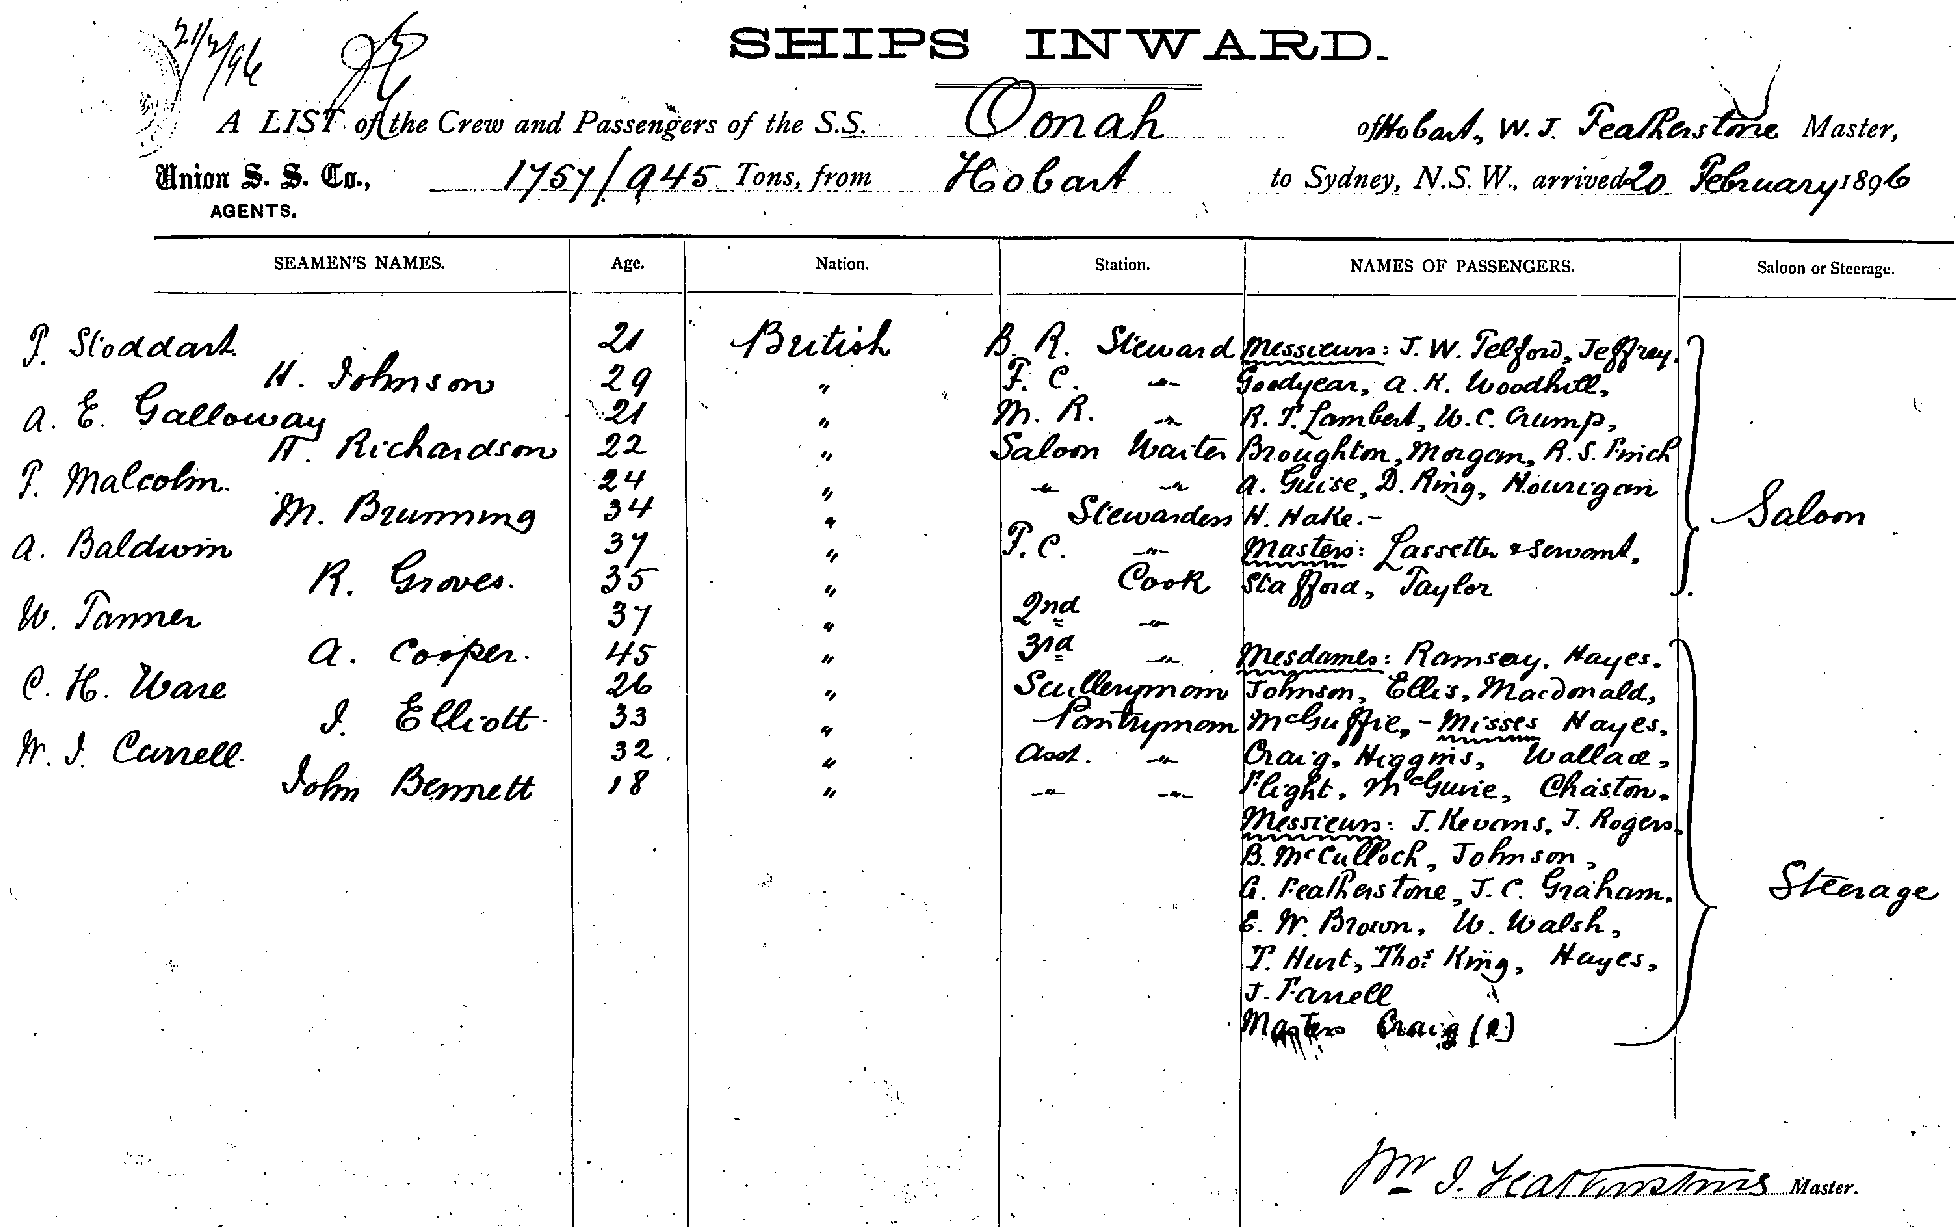 21/2/96
SHIPS INWARD.
A LIST of the Crew and Passengers of the S.S. Oonah of Hobart, W. J. Featherstone Master,
Union S. S. Co., 1757/945 Tons, from Hobart to Sydney, N.S.W., arrived 20 February 1896
AGENTS.
SEAMEN'S NAMES. Age. Nation. Station. NAMES OF PASSENGERS. Saloon or Steerage.
P. Stoddart 21 British B. R. Steward Messieurs: J. W. Telford, Jeffrey.
H. Johnson 29 " F. C. -"- Goodyear, A. K. Woodhill,
A. E. Galloway 21 " M. R. -"- R. P. Lambert, W. C. Crump,
H. Richardson 22 " Saloon Waiter Broughton, Morgan, R. S. Finch
P. Malcolm. 24 " -"- -"- A. Guise, D. Ring, Hourigan
M. Brunning 34 " Stewardess H. Hake.- Saloon
A. Baldwin 37 " F. C. -"- Masters: Lassetter & Servant,
R. Groves. 35 " Cook Stafford, Taylor
W. Tanner 37 " 2nd -"-
A. Cooper. 45 " 3rd -"- Mesdames: Ramsay, Hayes.
C. H. Ware 26 " Sculleryman Johnson, Ellis, Macdonald,
J. Elliott 33 " Pantryman McGuffie, - Misses Hayes,
W. J. Carrell. 32 " Asst. -"- Craig, Higgins, Wallace,
John Bennett 18 " -"- -"- Flight, McGuire, Chaston.
Messieurs: J. Kevans, J. Rogers,
B. McCulloch, Johnson,
G. Featherstone, J. C. Graham. Steerage
E. W. Brown, W. Walsh,
T. Hurt, Thos King, Hayes,
J. Farrell
Masters Craig (2)
Wm J. Featherstone Master.